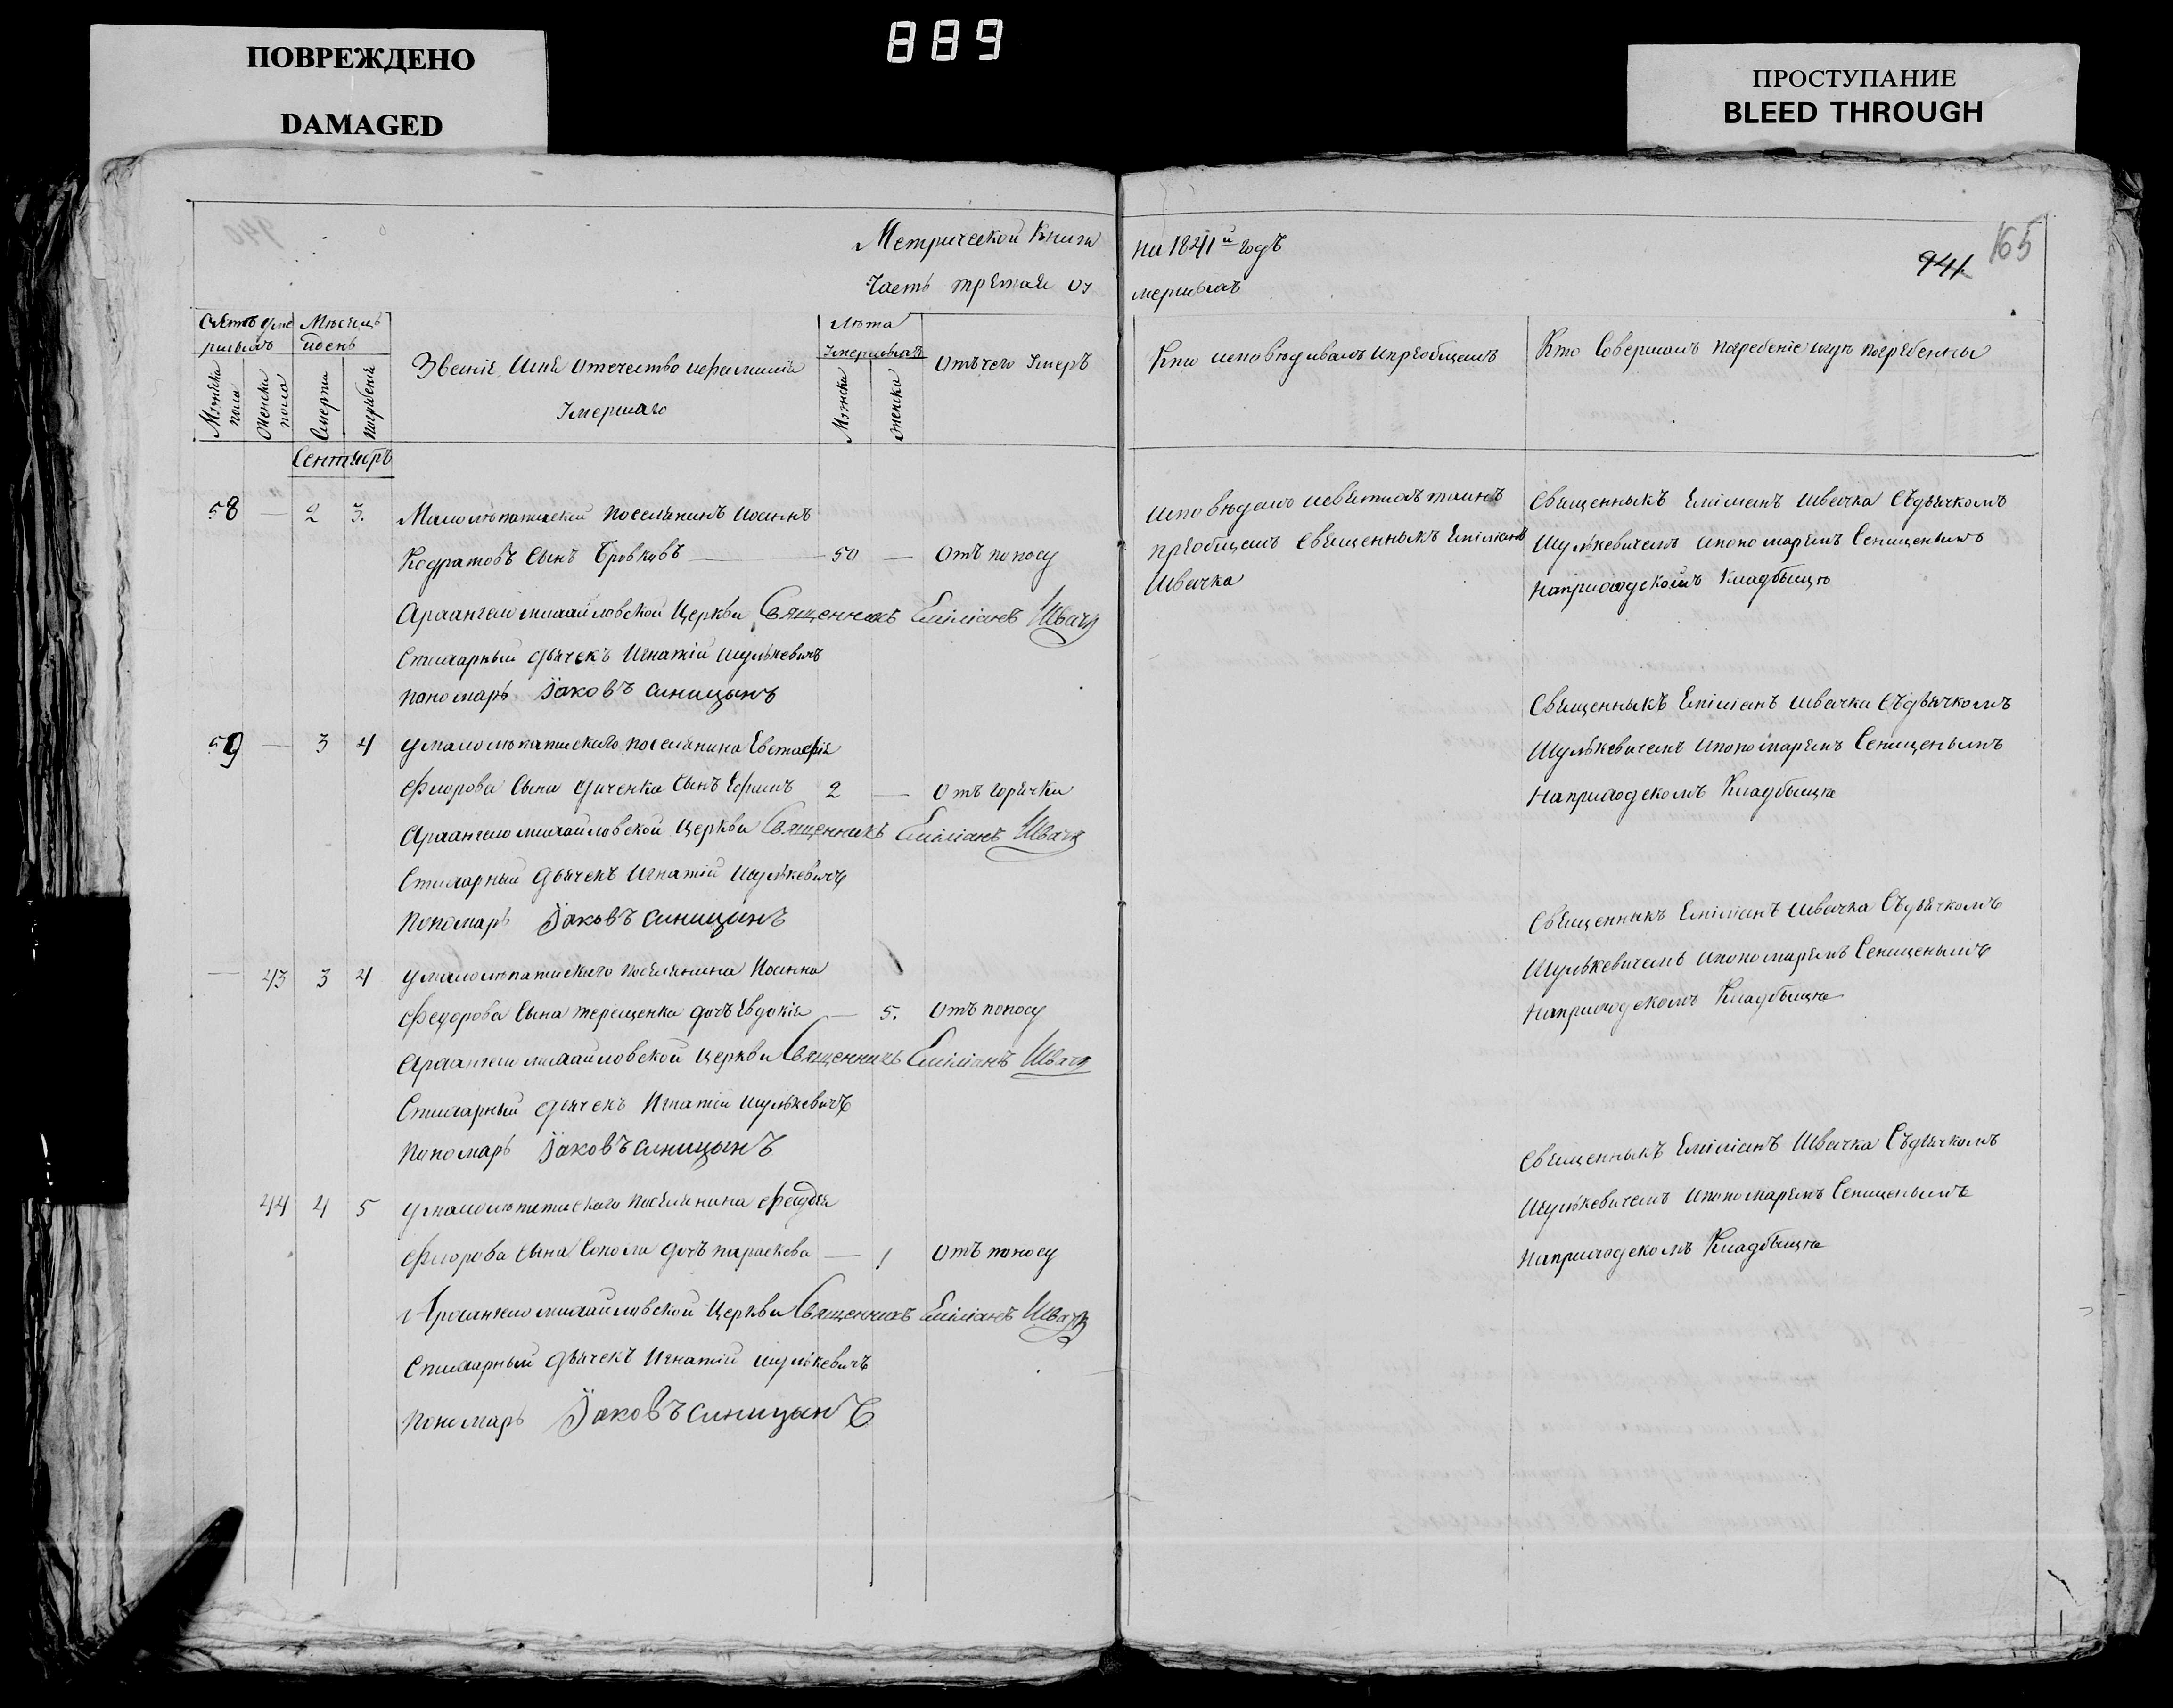 889
ПОВРЕЖДЕНО
DAMAGED
ПРОСТУПАНИЕ
BLEED THROUGH
940
Метрической Книги на 1841й годъ
Часть третая оу мершихъ
941. 165
Счетъ уме ршихъ
Мужска пола
Женска пола
Месяцъ и день
Смерти
Погребенiя
Званiе Имя Отечество и фамилiя
Умершаго
Лѣта Умершихъ
Мужска
Женска
Отъ чего Умеръ
Кто исповѣдивалъ и прiобщалъ
Кто Совершалъ погребенiе и гдѣ погребенны
Сентября
58 — 2 3. Малолѣпатиской поселянинъ Иоаннъ
Кодратовъ Сынъ Бровковъ — 50 — Отъ поносу
Исповѣдалъ и святихъ таинъ
прiобщалъ Священныкъ Емiлiанъ
Швачка
Священныкъ Емiлiанъ Швачка Съ дьячкомъ
Шулькевичемъ и пономаремъ Сениценымъ
На приходскомъ Кладбыщѣ
Архангело михайловской Церкви Священникъ Емiлiанъ Швачка
Стихарный дьячекъ Игнатiй Шулькевичъ
Пономарь Iаковъ Синицынъ
59 — 3 4 У малолѣпатиского поселянина Евстафiя
Фиорова Сына Дяченка Сынъ Ефимъ 2 — Отъ горячки
Священныкъ Емiлiанъ Швачка Съ дьячкомъ
Шулькевичемъ и пономаремъ Сеницеңымъ
На приходскомъ Кладбыщѣ
Архангело михайловской Церкви Священникъ Емiлiанъ Швачка
Стихарный Дьячекъ Игнатiй Шулькевичъ
Пономарь Iаковъ Синицынъ
— 43 3 4 У малолѣпатиского поселянина Иоанна
Федорова Сына Терещенка дочь Евдокiя — 5. Отъ поносу
Священныкъ Емiлiанъ Швачка Съ дьячкомъ
Шулькевичемъ и пономаремъ Сеницеnымъ
На приходскомъ Кладбыщѣ
Архангело михайловской Церкви Священникъ Емiлiанъ Швачка
Стихарный дьячекъ Игнатiй Шулькевичъ
Пономарь Iаковъ Синицынъ
44 4 5 У малолѣпатиского поселянина
Фиорова Сына Сокола дочь параскева — 1 Отъ поносу
Священныкъ Емiлiанъ Швачка Съ дьячкомъ
Шулькевичемъ и пономаремъ Сеницеnымъ
На приходскомъ Кладбыщѣ
Архангело михайловской Церкви Священникъ Емiлiанъ Швачка
Стихарный дьячекъ Игнатiй Шулькевичъ
Пономарь Iаковъ Синицынъ